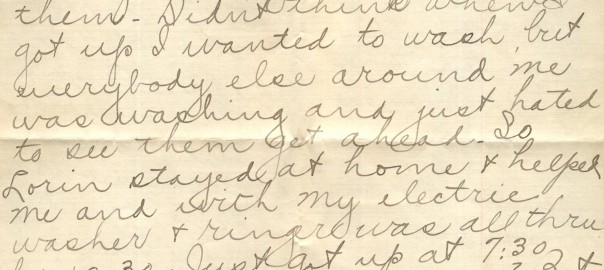 them - Didn't think when I
got up I wanted to wash but
everybody else around me
was washing and just hated
to see them get ahead. So
Lorin stayed at home & helped
me and with my electric
washer & ringer was all thru
Just got up at 7:30